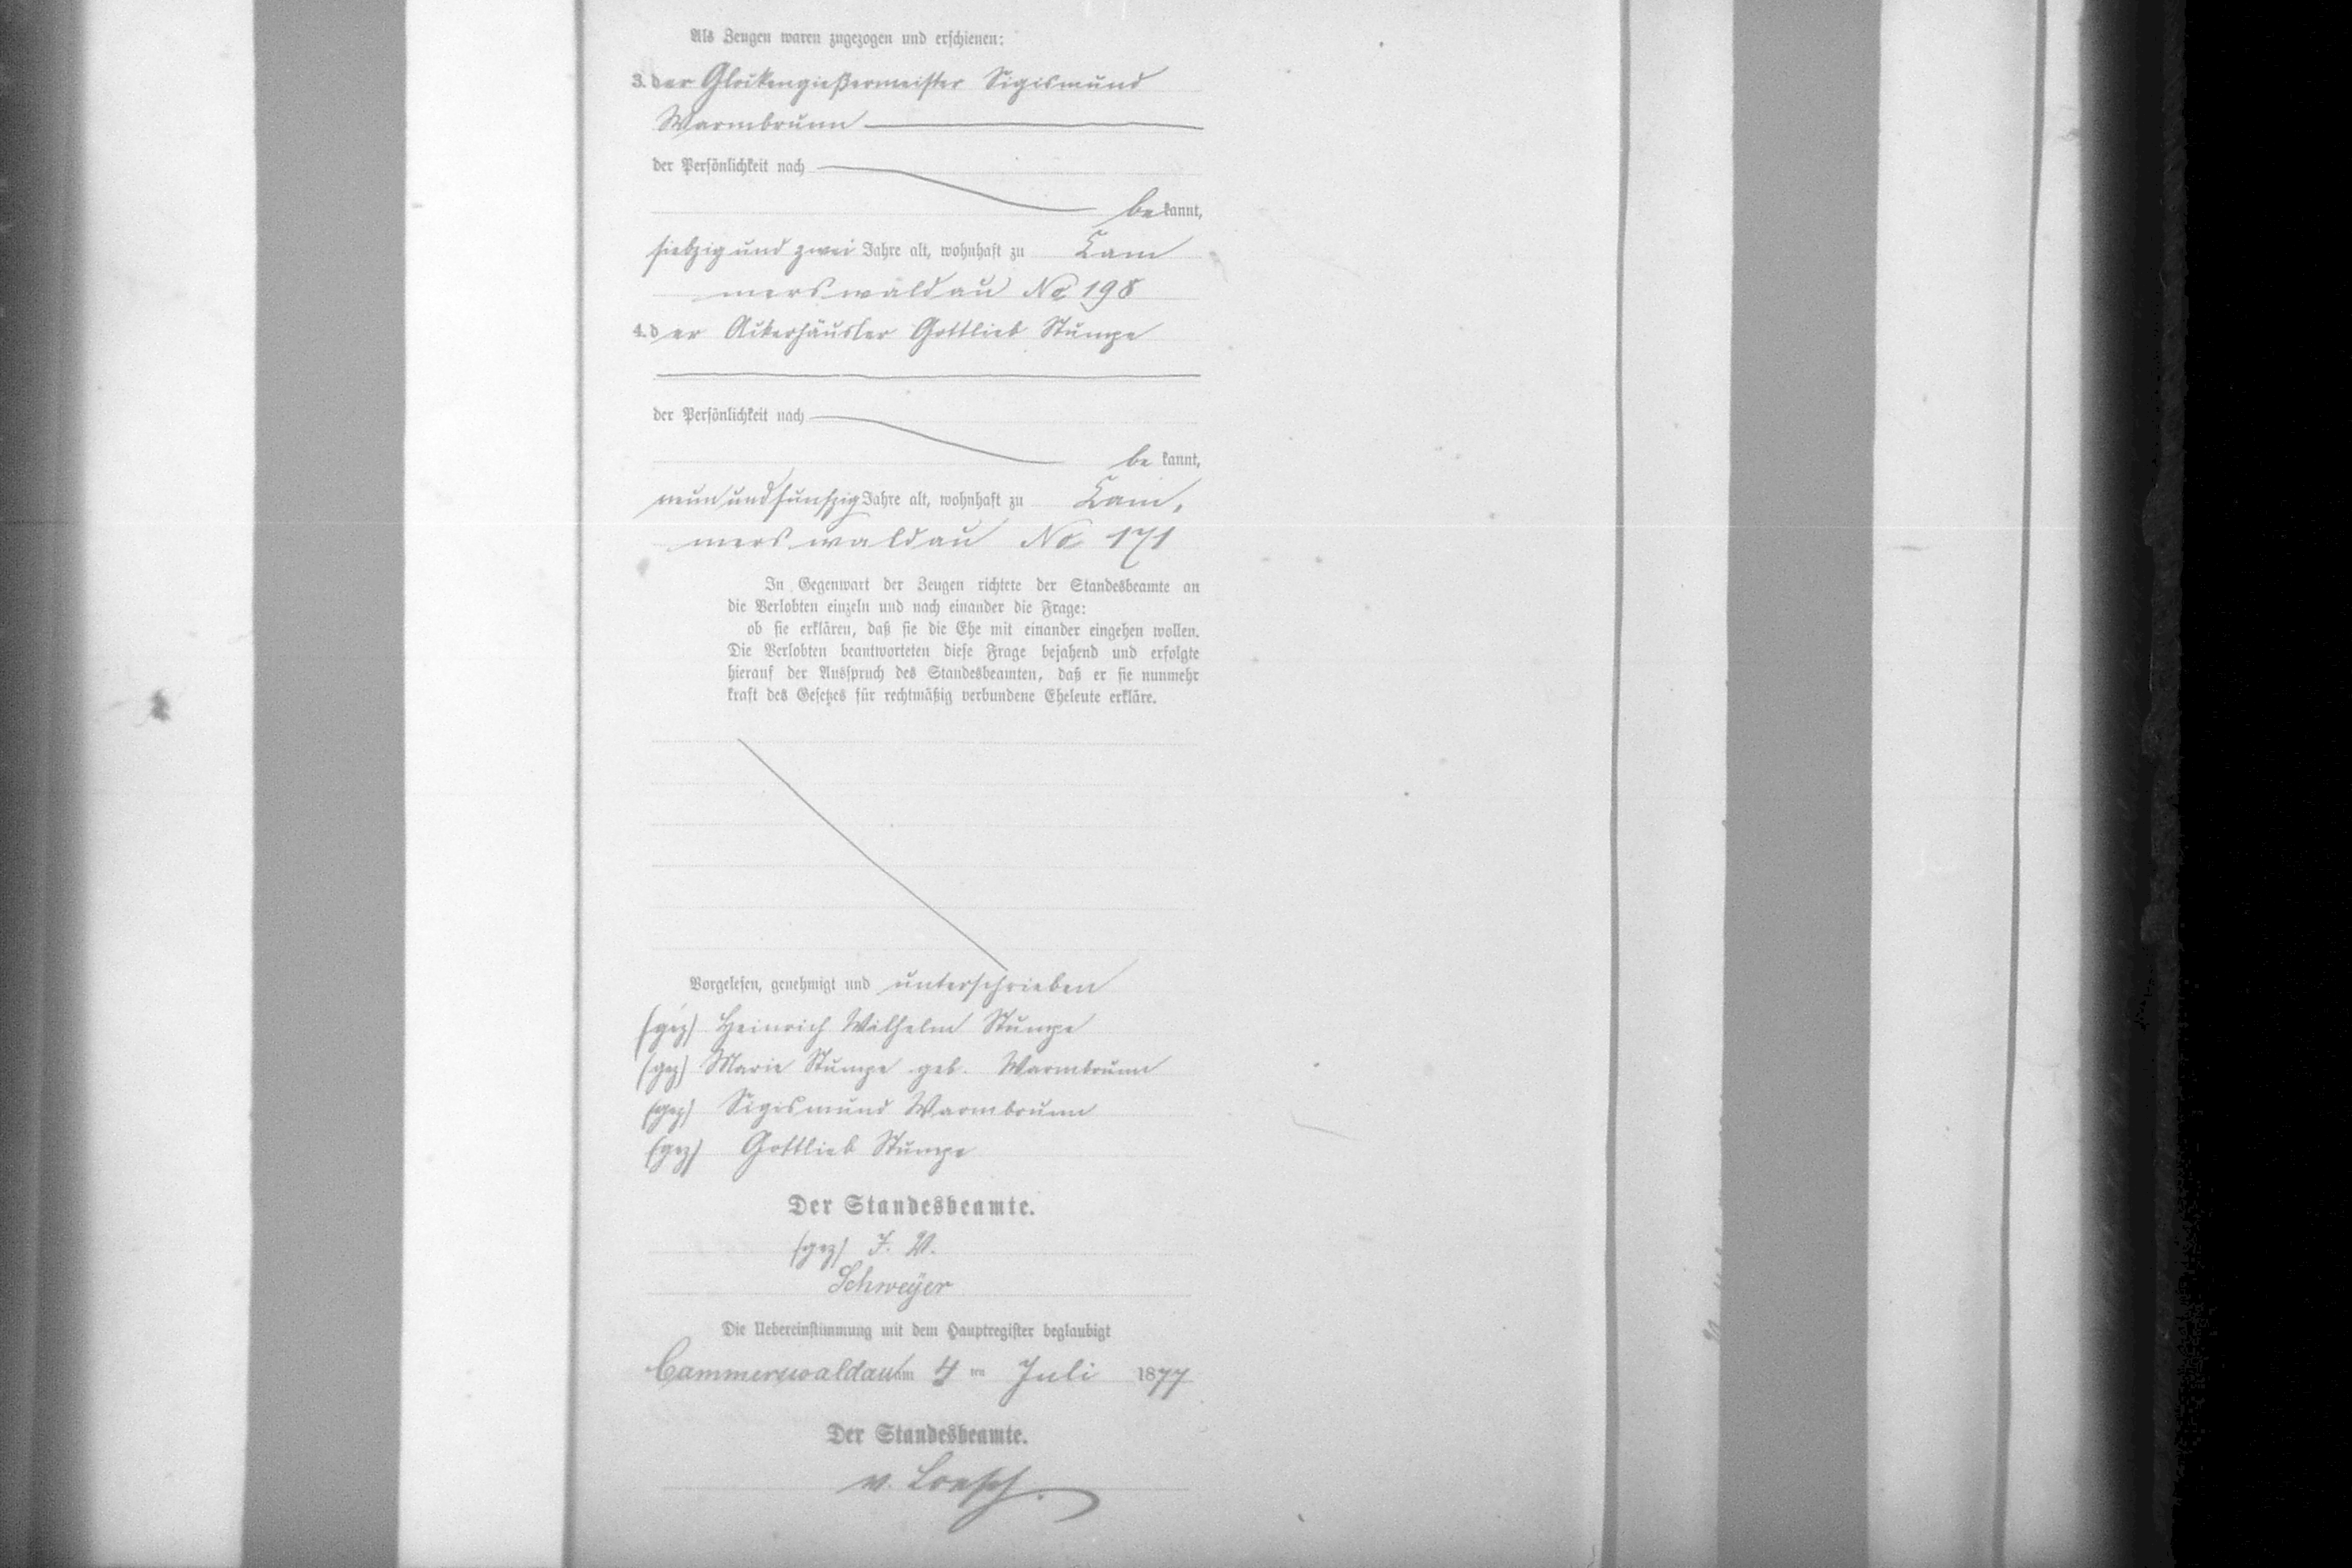 Als Zeugen waren zugezogen und erschienen:
3. der Glockengießermeister Sigismund
Warmbrunn
der Persönlichkeit nach
bekannt,
siebzig und zwei Jahre alt, wohnhaft zu Cam
merswaldau No 198
4. der Ackerhäusler Gottlieb Stumpe
der Persönlichkeit nach
be kannt,
neun und fünfzig Jahre alt, wohnhaft zu Cam,
merswaldau No 171
In Gegenwart der Zeugen richtete der Standesbeamte an
die Verlobten einzeln und nach einander die Frage:
ob sie erklären, daß sie die Ehe mit einander eingehen wollen.
Die Verlobten beantworteten diese Frage bejahend und erfolgte
hierauf der Ausspruch des Standesbeamten, daß er sie nunmehr
kraft des Gesetzes für rechtmäßig verbundene Eheleute erkläre.
Vorgelesen, genehmigt und unterschrieben
(gez) Heinrich Wilhelm Stumpe
(gez) Marie Stumpe geb. Warmbrunn
(gez) Sigismund Warmbrunn
(gez) Gottlieb Stumpe
Der Standesbeamte.
(gez) I. V.
Schweÿer
Die Uebereinstimmung mit dem Hauptregister beglaubigt
Cammerswaldau am 4 ten Juli 1877
Der Standesbeamte.
v. Loesch.